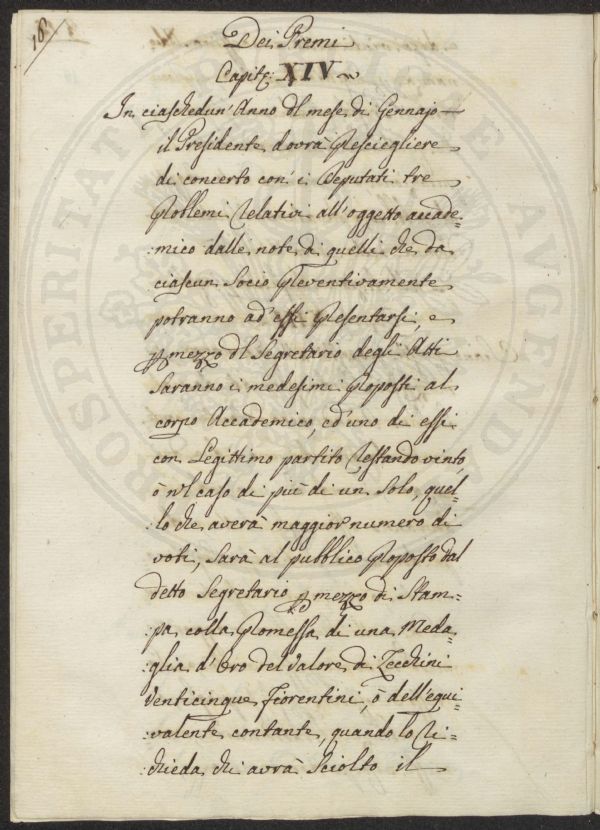 18
Dei Premi
Capit: XIV
In ciaschedun' Anno dl mese di Gennajo
il Presidente dovrà Presciegliere
di concerto con' i Deputati tre
Problemi relativi all'oggetto accade=
:mico dalle note di quelli che da
ciascun Socio Preventivamente
potranno ad' essi Presentarsi, e
p mezzo dl Segretario degli Atti
Saranno i medesimi Proposti al
corpo Accademico, ed' uno di essi
con Legittimo partito restando vinto,
ò nl caso di più di un Solo, quel=
:lo che averà maggior numero di
voti, Sarà al pubblico Proposto dal
detto Segretario p mezzo di Stam=
:pa colla Promessa di una Meda=
:glia d'Oro del valore di Zecchini
Venticinque Fiorentini, ò dell'equi=
:valente contante, quando lo ri=
:chieda chi avrà Sciolto il
PROSPERITATI AUGENDAE